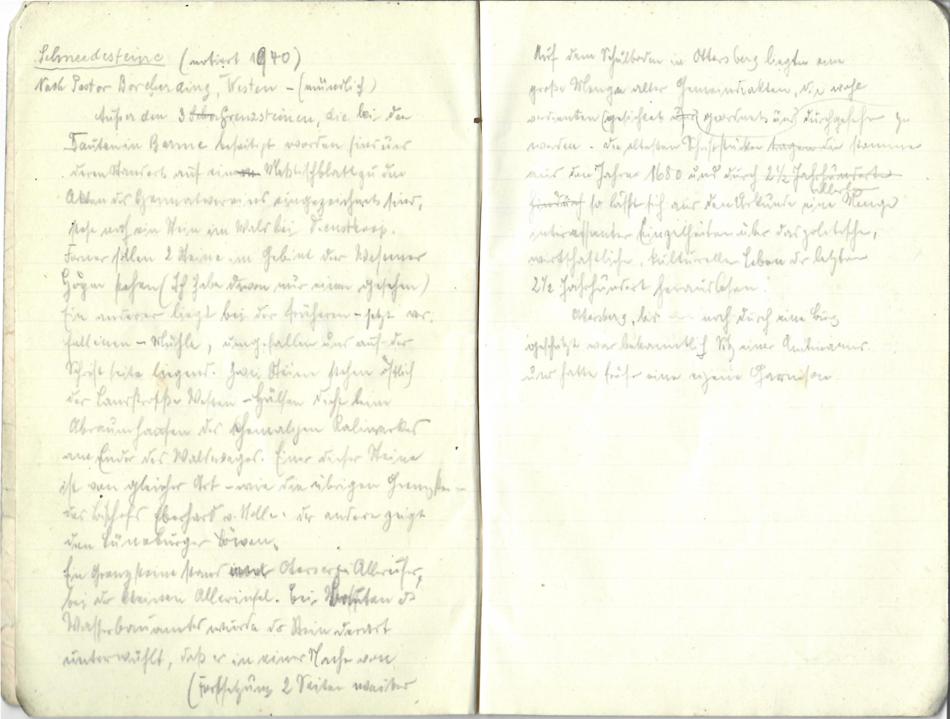 Schneedesteine (notiert 1940)
Nach Pastor Borcherding, Westen – (mündlich)
Außer den 3 Grenzsteinen, die bei den
Bauten in Barme beseitigt worden sind und
deren Standort auf einem Meßtischblatt zu den
Akten des Heimatvereins eingezeichnet sind,
stehe noch ein Stein im Wald bei
Ferner sollen 2 Steine im Gebiet der Westener
stehen (Ich habe davon nur einen gesehen)
Ein anderer liegt bei der früheren – jetzt ver-
fallenen – Mühle, umgefallen und auf der
Schriftseite liegend. Zwei Steine stehen östlich
der Landstraße Westen – Hülsen dicht beim
Abraumhaufen des ehemaligen Kaliwerkes
am Ende des Waldweges. Einer dieser Steine
ist von gleicher Art – wie die übrigen
des Bischofs Eberhard v. Holle. der andere zeigt
den Lüneburger Löwen.
Ein Grenzstein stand Allerufer,
bei der kleinen Allerinsel. Bei d.
Wasserbauamtes wurde der Stein derart
unterwühlt, daß er in einer Nacht von
(Fortsetzung 2 Seiten weiter
Auf dem Schulboden in Ottersberg liegen eine
große Menge alter Gemeindeakten, die wohl
verdienten gesichtet und geordnet und durchgesehen zu
werden. Die ältesten Schriftstücke stammen
aus dem Jahre 1680 und durch 2½ Jahrhunderte
hindurch so läßt sich aus den Urkunden eine Menge
interessanter Einzelheiten über das politische,
wirtschaftliche, kulturelle Leben der letzten
2½ Jahrhundert herauslesen.
Ottersberg, das noch durch eine Burg
geschützt war bekanntlich Sitz eines Amtmannes
und hatte früher eine eigene Garnison